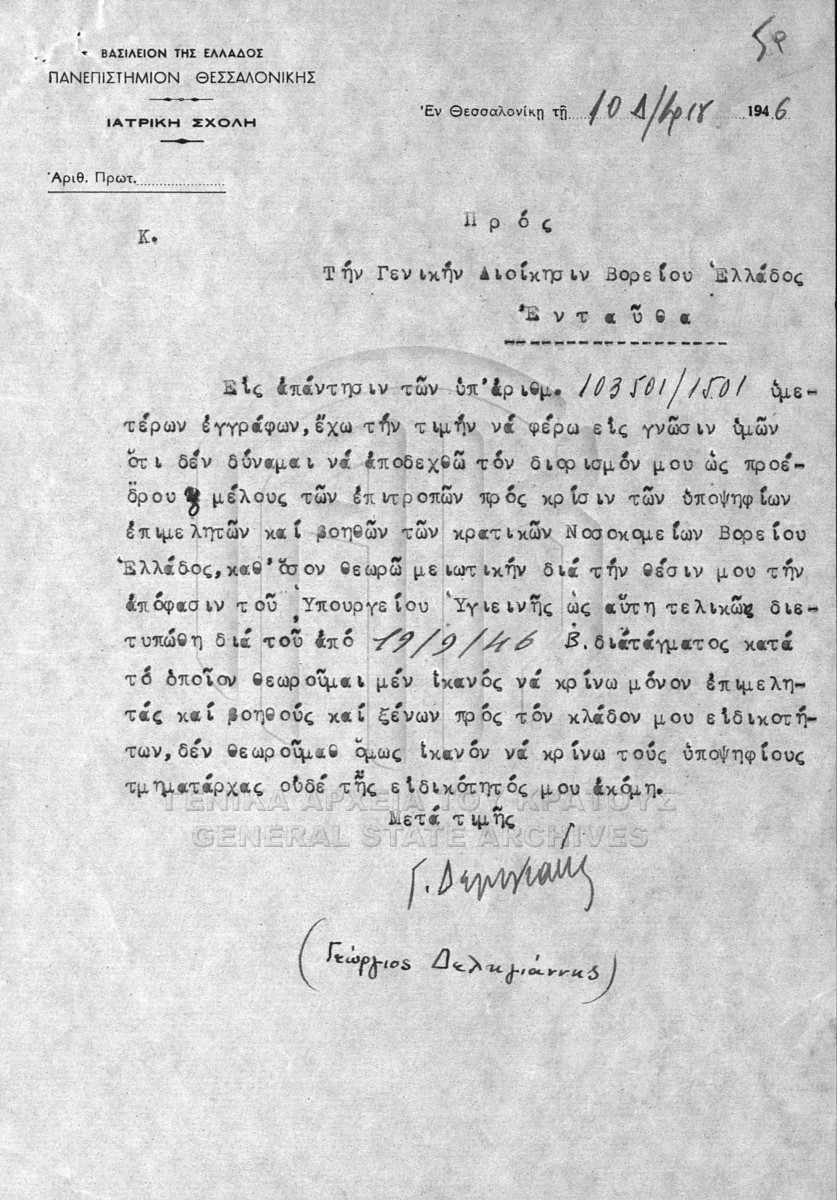 ΒΑΣΙΛΕΙΟΝ ΤΗΣ ΕΛΛΑΔΟΣ
ΠΑΝΕΠΙΣΤΗΜΙΟΝ ΘΕΣΣΑΛΟΝΙΚΗΣ
ΙΑΤΡΙΚΗ ΣΧΟΛΗ
Ἐν Θεσσαλονίκῃ τῇ 10 Δ/βρίου 1946
Ἀριθ. Πρωτ.
Πρός
Κ.
Τήν Γενικήν Διοίκησιν Βορείου Ἑλλάδος
Ἐνταῦθα
Εἰς ἀπάντησιν τῶν ὑπ'ἀριθμ. 103501/1501 ὑμε-
τέρων ἐγγράφων, ἔχω τήν τιμήν νά φέρω εἰς γνῶσιν ὑμῶν
ὅτι δέν δύναμαι νά ἀποδεχθῶ τόν διορισμόν μου ὡς προέ-
δρου ἤ μέλους τῶν ἐπιτροπῶν πρός κρίσιν τῶν ὑποψηφίων
ἐπιμελητῶν καί βοηθῶν τῶν κρατικῶν Νοσοκομείων Βορείου
Ἑλλάδος, καθ'ὅσον θεωρῶ μειωτικήν διά τήν θέσιν μου τήν
ἀπόφασιν τοῦ Ὑπουργείου Ὑγιεινῆς ὡς αὕτη τελικῶς διε-
τυπώθη διά τοῦ ἀπό 19/9/46 Β. διατάγματος κατά
τό ὁποῖον θεωροῦμαι μέν ἱκανός νά κρίνω μόνον ἐπιμελη-
τάς καί βοηθούς καί ξένων πρός τόν κλάδον μου εἰδικοτή-
των, δέν θεωροῦμαθ ὅμως ἱκανόν νά κρίνω τούς ὑποψηφίους
τμηματάρχας οὐδέ τῆς εἰδικότητός μου ἀκόμη.
ΓΕΝΙΚΑ ΑΡΧΕΙΑ ΤΟΥ ΚΡΑΤΟΥΣ
Μετά τιμῆς
GENERAL STATE ARCHIVES
(Γεώργιος Δεληγιάννης)